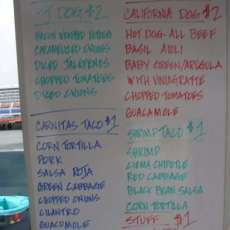 DOG $2
CARAMELIZED ONIONS
DICED JALAPENOS
CHOPPED TOMATOES
DICED ONIONS
CARNITAS TACO $1
CORN TORTILLA
PORK
SALSA ROJA
GREEN CABBAGE
CHOPPED ONIONS
CILANTRO
GUACAMOLE
CALIFORNIA DOG $2
HOT DOG - ALL BEEF
BASIL AIOLI
BABY GREEN/ARUGULA
WITH VINIAGRATTE
CHOPPED TOMATOES
GUACAMOLE
SHRIMP TACO $1
SHRIMP
CREMA CHIPOTLE
RED CABBAGE
BLACK BEAN SALSA
CORN TORTILLA
STUFF $1